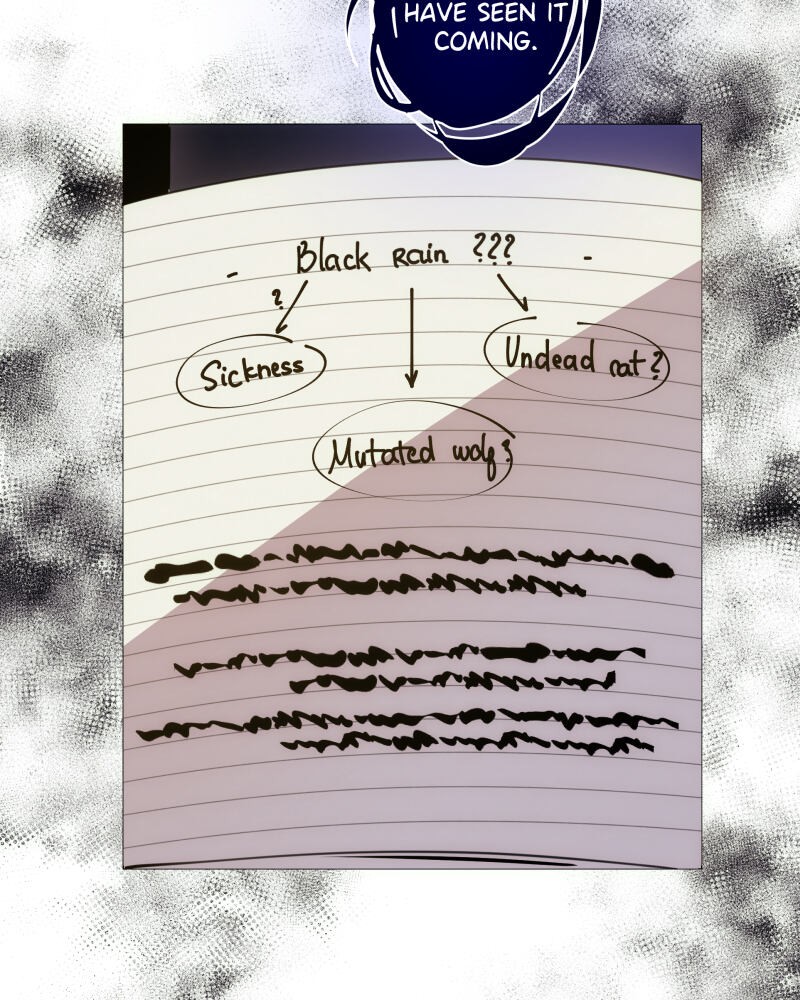 HAVE SEEN IT
COMING.
- Black Rain ??? -
?
Sickness
Undead rat?
Mutated wolf?